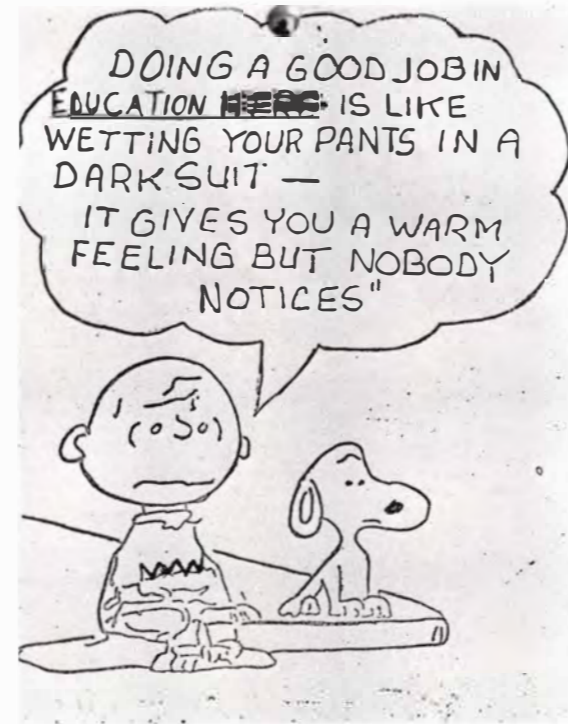 DOING A GOOD JOB IN
EDUCATION HERE IS LIKE
WETTING YOUR PANTS IN A
DARK SUIT —
IT GIVES YOU A WARM
FEELING BUT NOBODY
NOTICES"